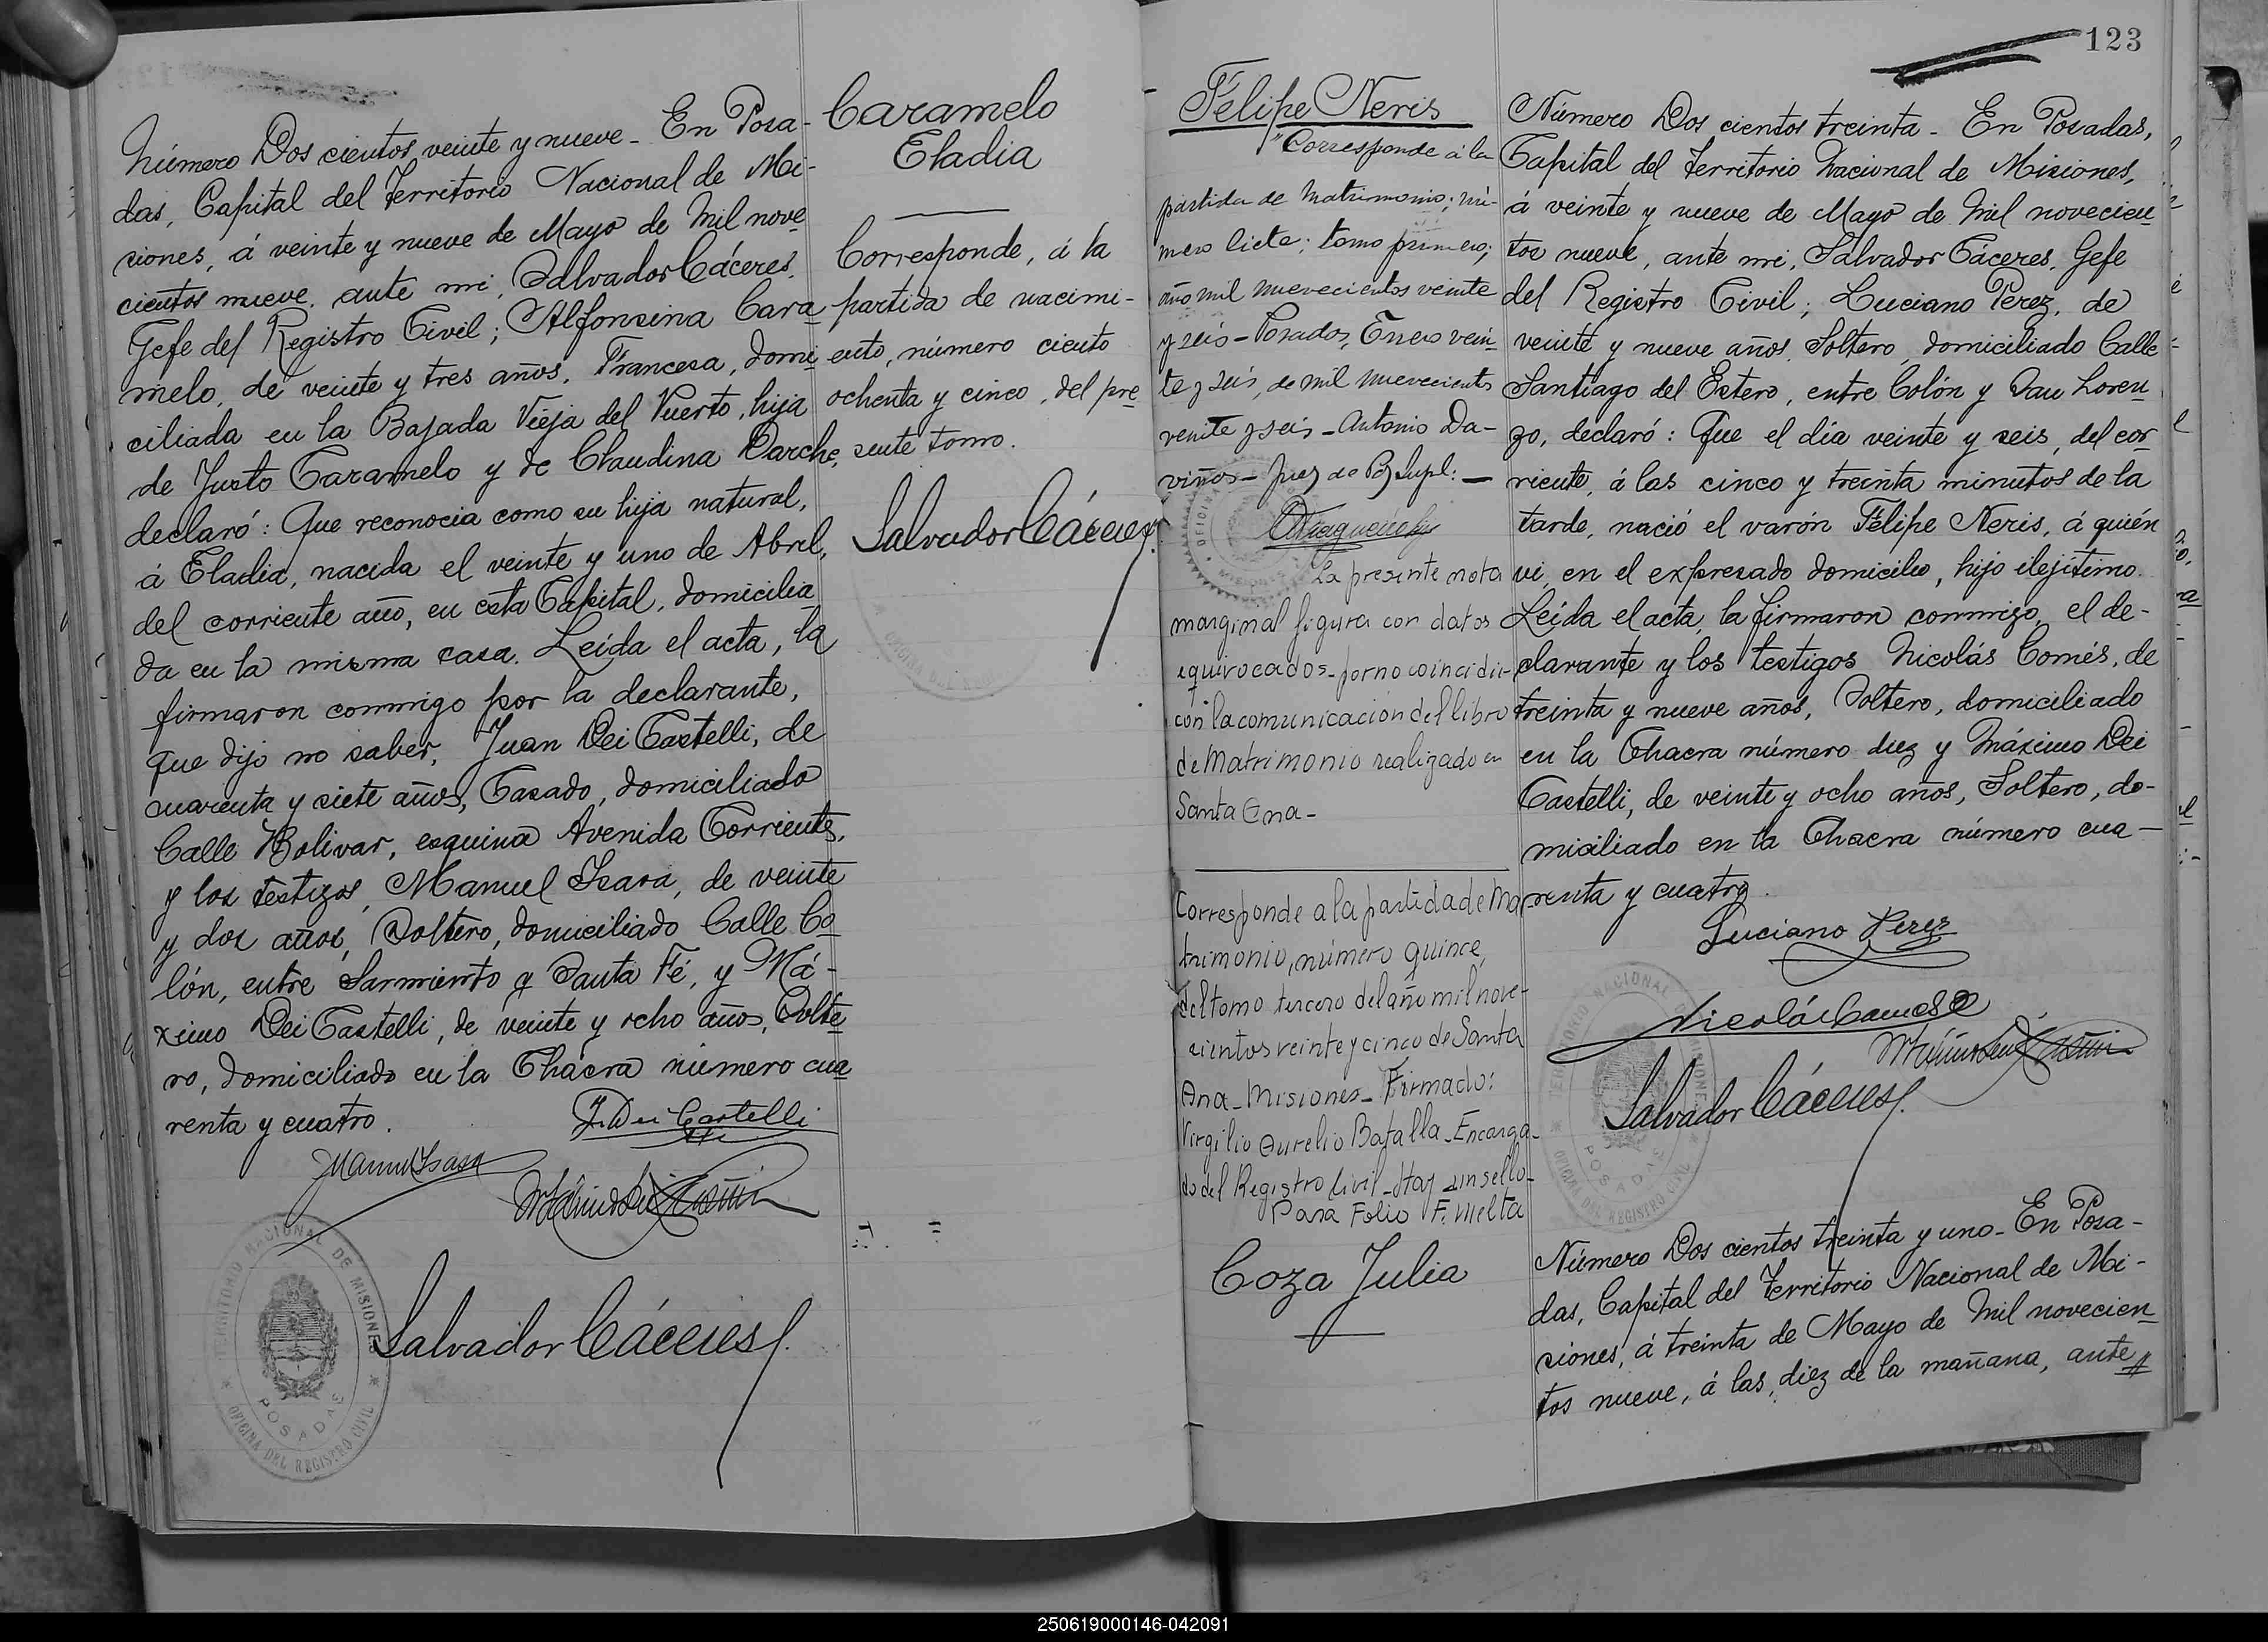 Número Dos cientos veinte y nueve - En Posa-
das, Capital del Territorio Nacional de Mi-
siones, á veinte y nueve de Mayo de mil nove
cientos nueve, ante mi, Salvador Cáceres,
Gefe del Registro Civil; Alfonsina Cara
melo, de veinte y tres años, Francesa, domi
ciliada en la Bajada Vieja del Puerto, hija
de Justo Caramelo y de Claudina Darche,
declaró: Que reconocia como su hija natural,
á Eladia, nacida el veinte y uno de Abril,
del corriente año, en esta Capital, domicilia
da en la misma casa. Leida el acta, la
firmaron conmigo por la declarante,
que dijo no saber, Juan Dei Castelli, de
cuarenta y siete años, Casado, domiciliado
Calle Bolivar, esquina Avenida Corrientes,
y los testigos, Manuel Isasa, de veinte
y dos años, Soltero, domiciliado Calle Co
lón, entre Sarmiento y Santa Fé, y Má-
ximo Dei Castelli, de veinte y ocho años, Solte
ro, domiciliado en la Chacra número cua
renta y cuatro.
J. Dei Castelli
Manuel Isasa
Salvador Cáceres
TERRITORIO NACIONAL DE MISIONES
POSADAS
OFICINA DEL REGISTRO CIVIL
Caramelo
Eladia
Corresponde, á la
partida de nacimi-
ento, número ciento
ochenta y cinco, del pre
sente tomo.
Salvador Cáceres
123
Félipe Neris
Corresponde á la
partida de matrimonio; nú-
mero siete; tomo primero;
año mil nuevecientos veinte
y seis - Posadas, Enero vein-
te y seis, de mil nuevecientos
veinte y seis - Antonio Da-
viños - Juez de P. Supl: -
La presente nota
marginal figura con datos
equivocados - por no coincidir
con la comunicación del libro
de Matrimonio realizado en
Santa Ana -
Corresponde a la partida de Ma-
trimonio, número quince,
del tomo tercero del año mil nove-
cientos veinte y cinco de Santa
Ana - Misiones - Firmado:
Virgilio Aurelio Batalla - Encarga-
do del Registro Civil - Hay un sello -
Pasa Folio F. vuelta
Coza Julia
Número Dos cientos treinta - En Posadas,
Capital del Territorio Nacional de Misiones,
á veinte y nueve de Mayo de mil novecien
tos nueve, ante mi, Salvador Cáceres, Gefe
del Registro Civil; Luciano Perez, de
veinte y nueve años, Soltero, domiciliado Calle
Santiago del Estero, entre Colón y San Loren
zo, declaró: Que el día veinte y seis, del cor
riente, á las cinco y treinta minutos de la
tarde, nació el varón Félipe Neris, á quién
vi, en el expresado domicilio, hijo ilejítimo.
Leida el acta, la firmaron conmigo, el de-
clarante y los testigos Nicolás Comés, de
treinta y nueve años, Soltero, domiciliado
en la Chacra número diez y Máximo Dei
Castelli, de veinte y ocho años, Soltero, do-
miciliado en la Chacra número cua-
renta y cuatro.
Luciano Perez
Salvador Cáceres
TERRITORIO NACIONAL DE MISIONES
POSADAS
OFICINA DEL REGISTRO CIVIL
Número Dos cientos treinta y uno - En Posa-
das, Capital del Territorio Nacional de Mi-
siones, á treinta de Mayo de mil novecien
tos nueve, á las, diez de la mañana, ante
250619000146-042091